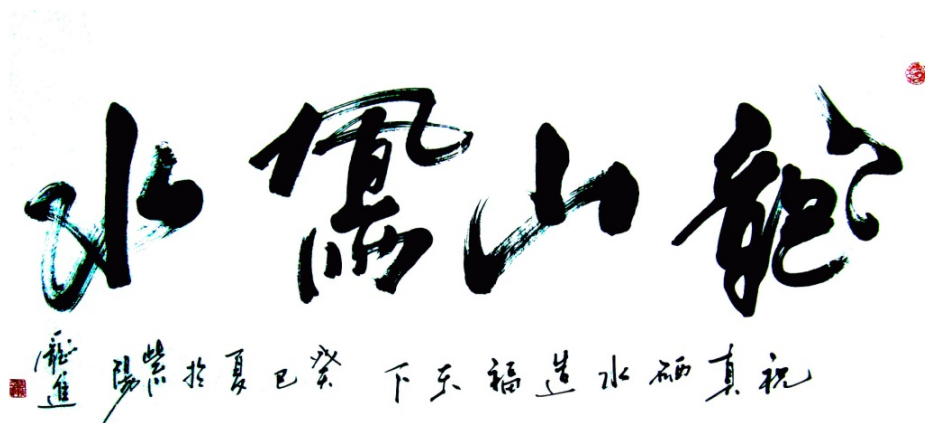 龍山鳳水
祝真硒水造福天下 癸巳夏於紫陽
龐進